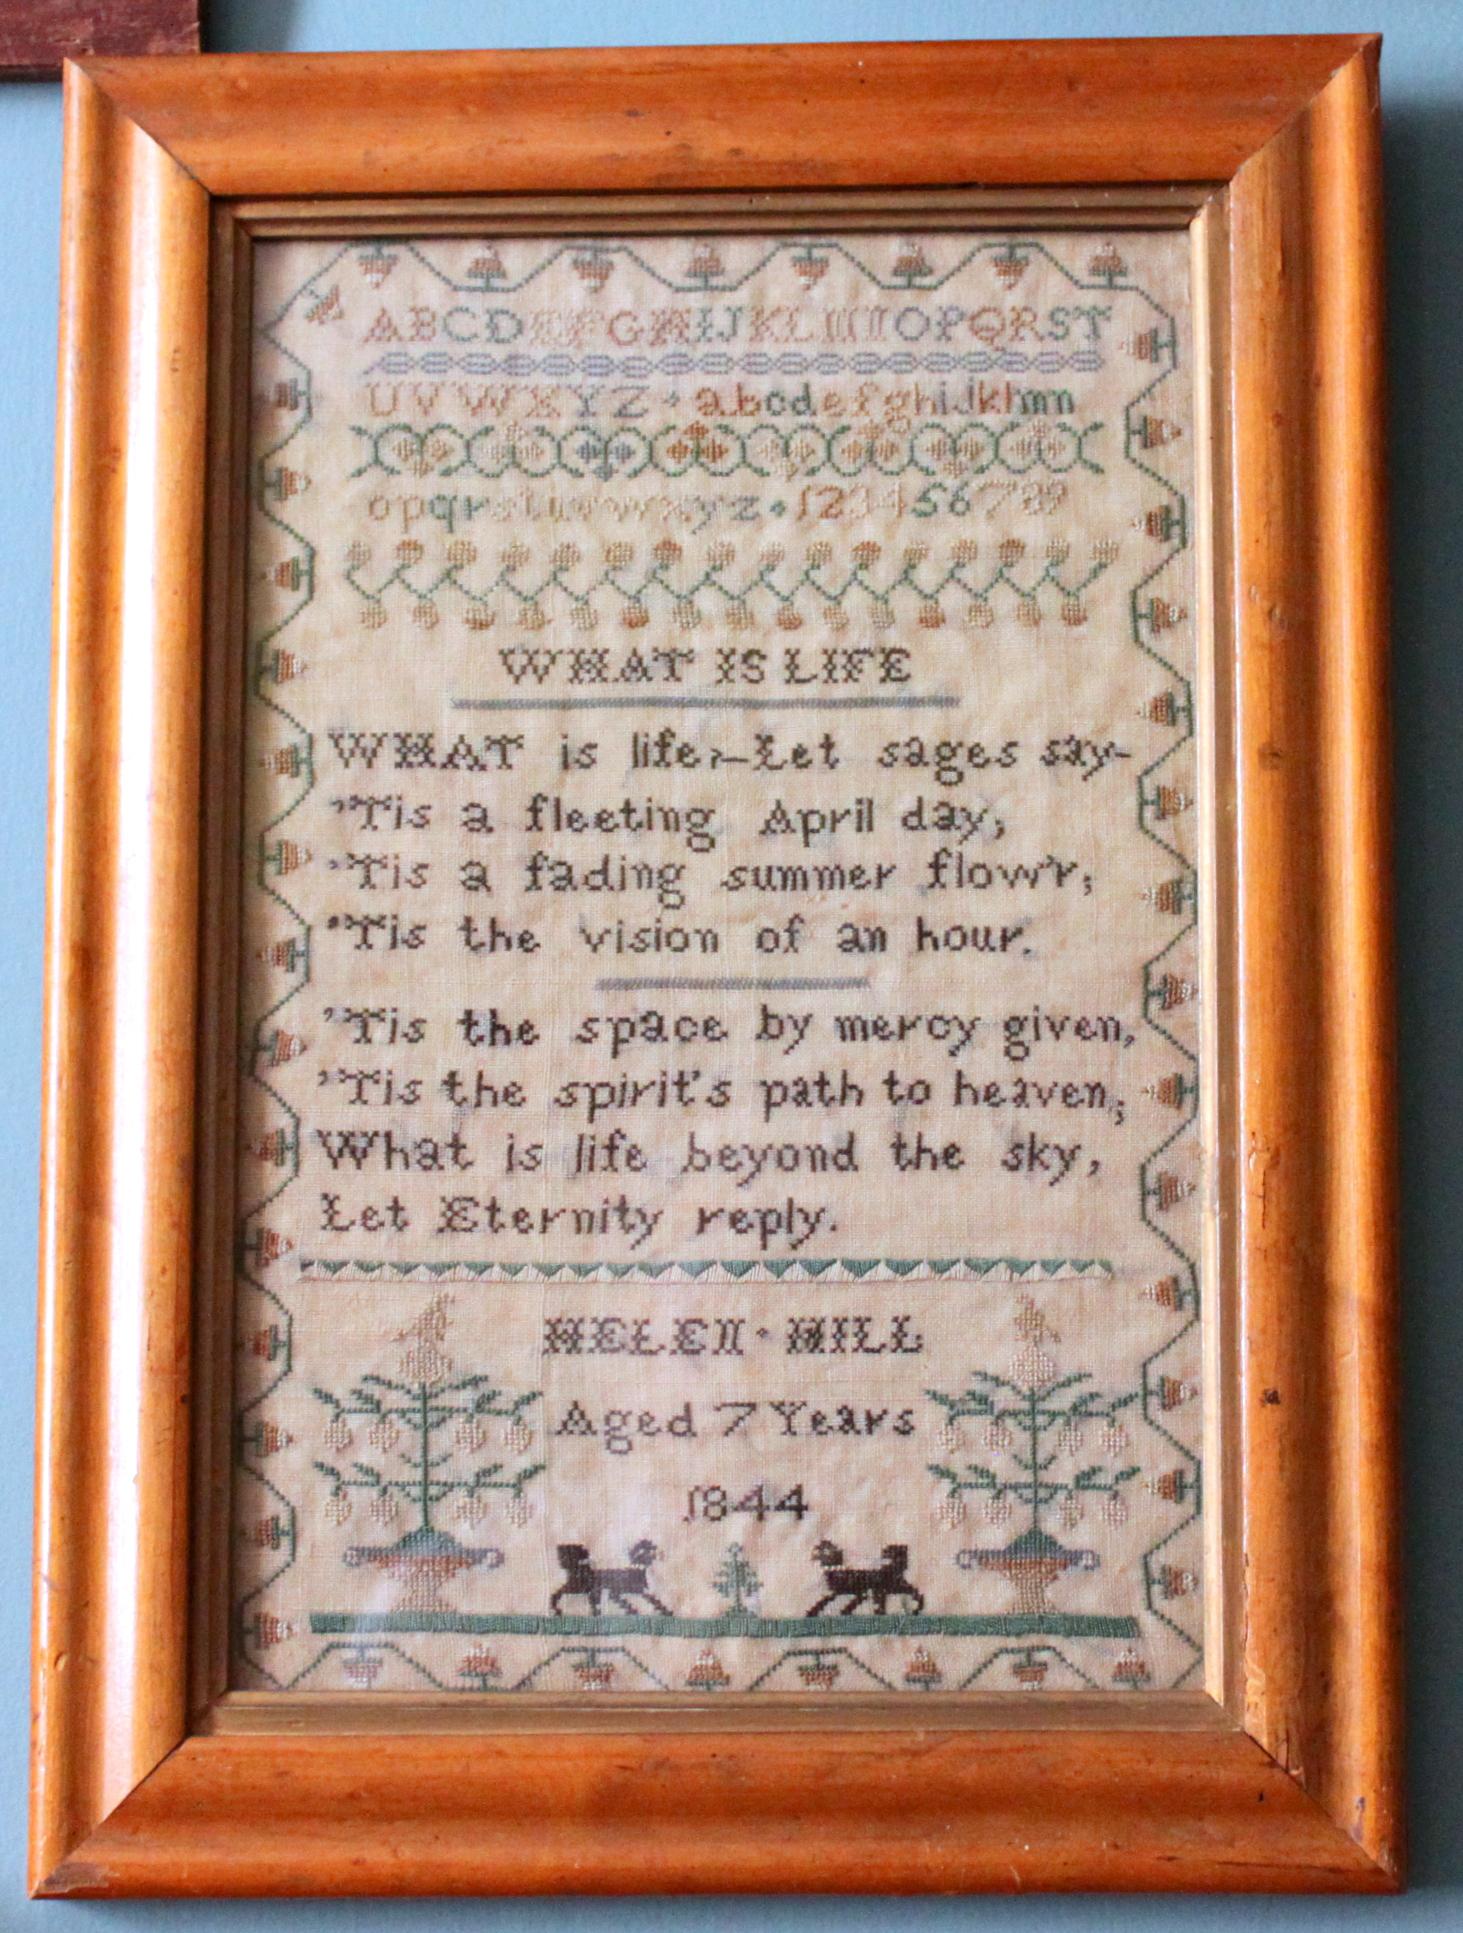 ABCDEFGHIJKLMNOPQRST
UVWXYZ · abcdefghijklmn
opqrstuvwxyz · 123456789
WHAT IS LIFE
WHAT is life?—Let sages say—
'Tis a fleeting April day,
'Tis a fading summer flow'r,
'Tis the vision of an hour.
'Tis the space by mercy given,
'Tis the spirit's path to heaven;
What is life beyond the sky,
Let Eternity reply.
HELEN · HILL
Aged 7 Years
1844